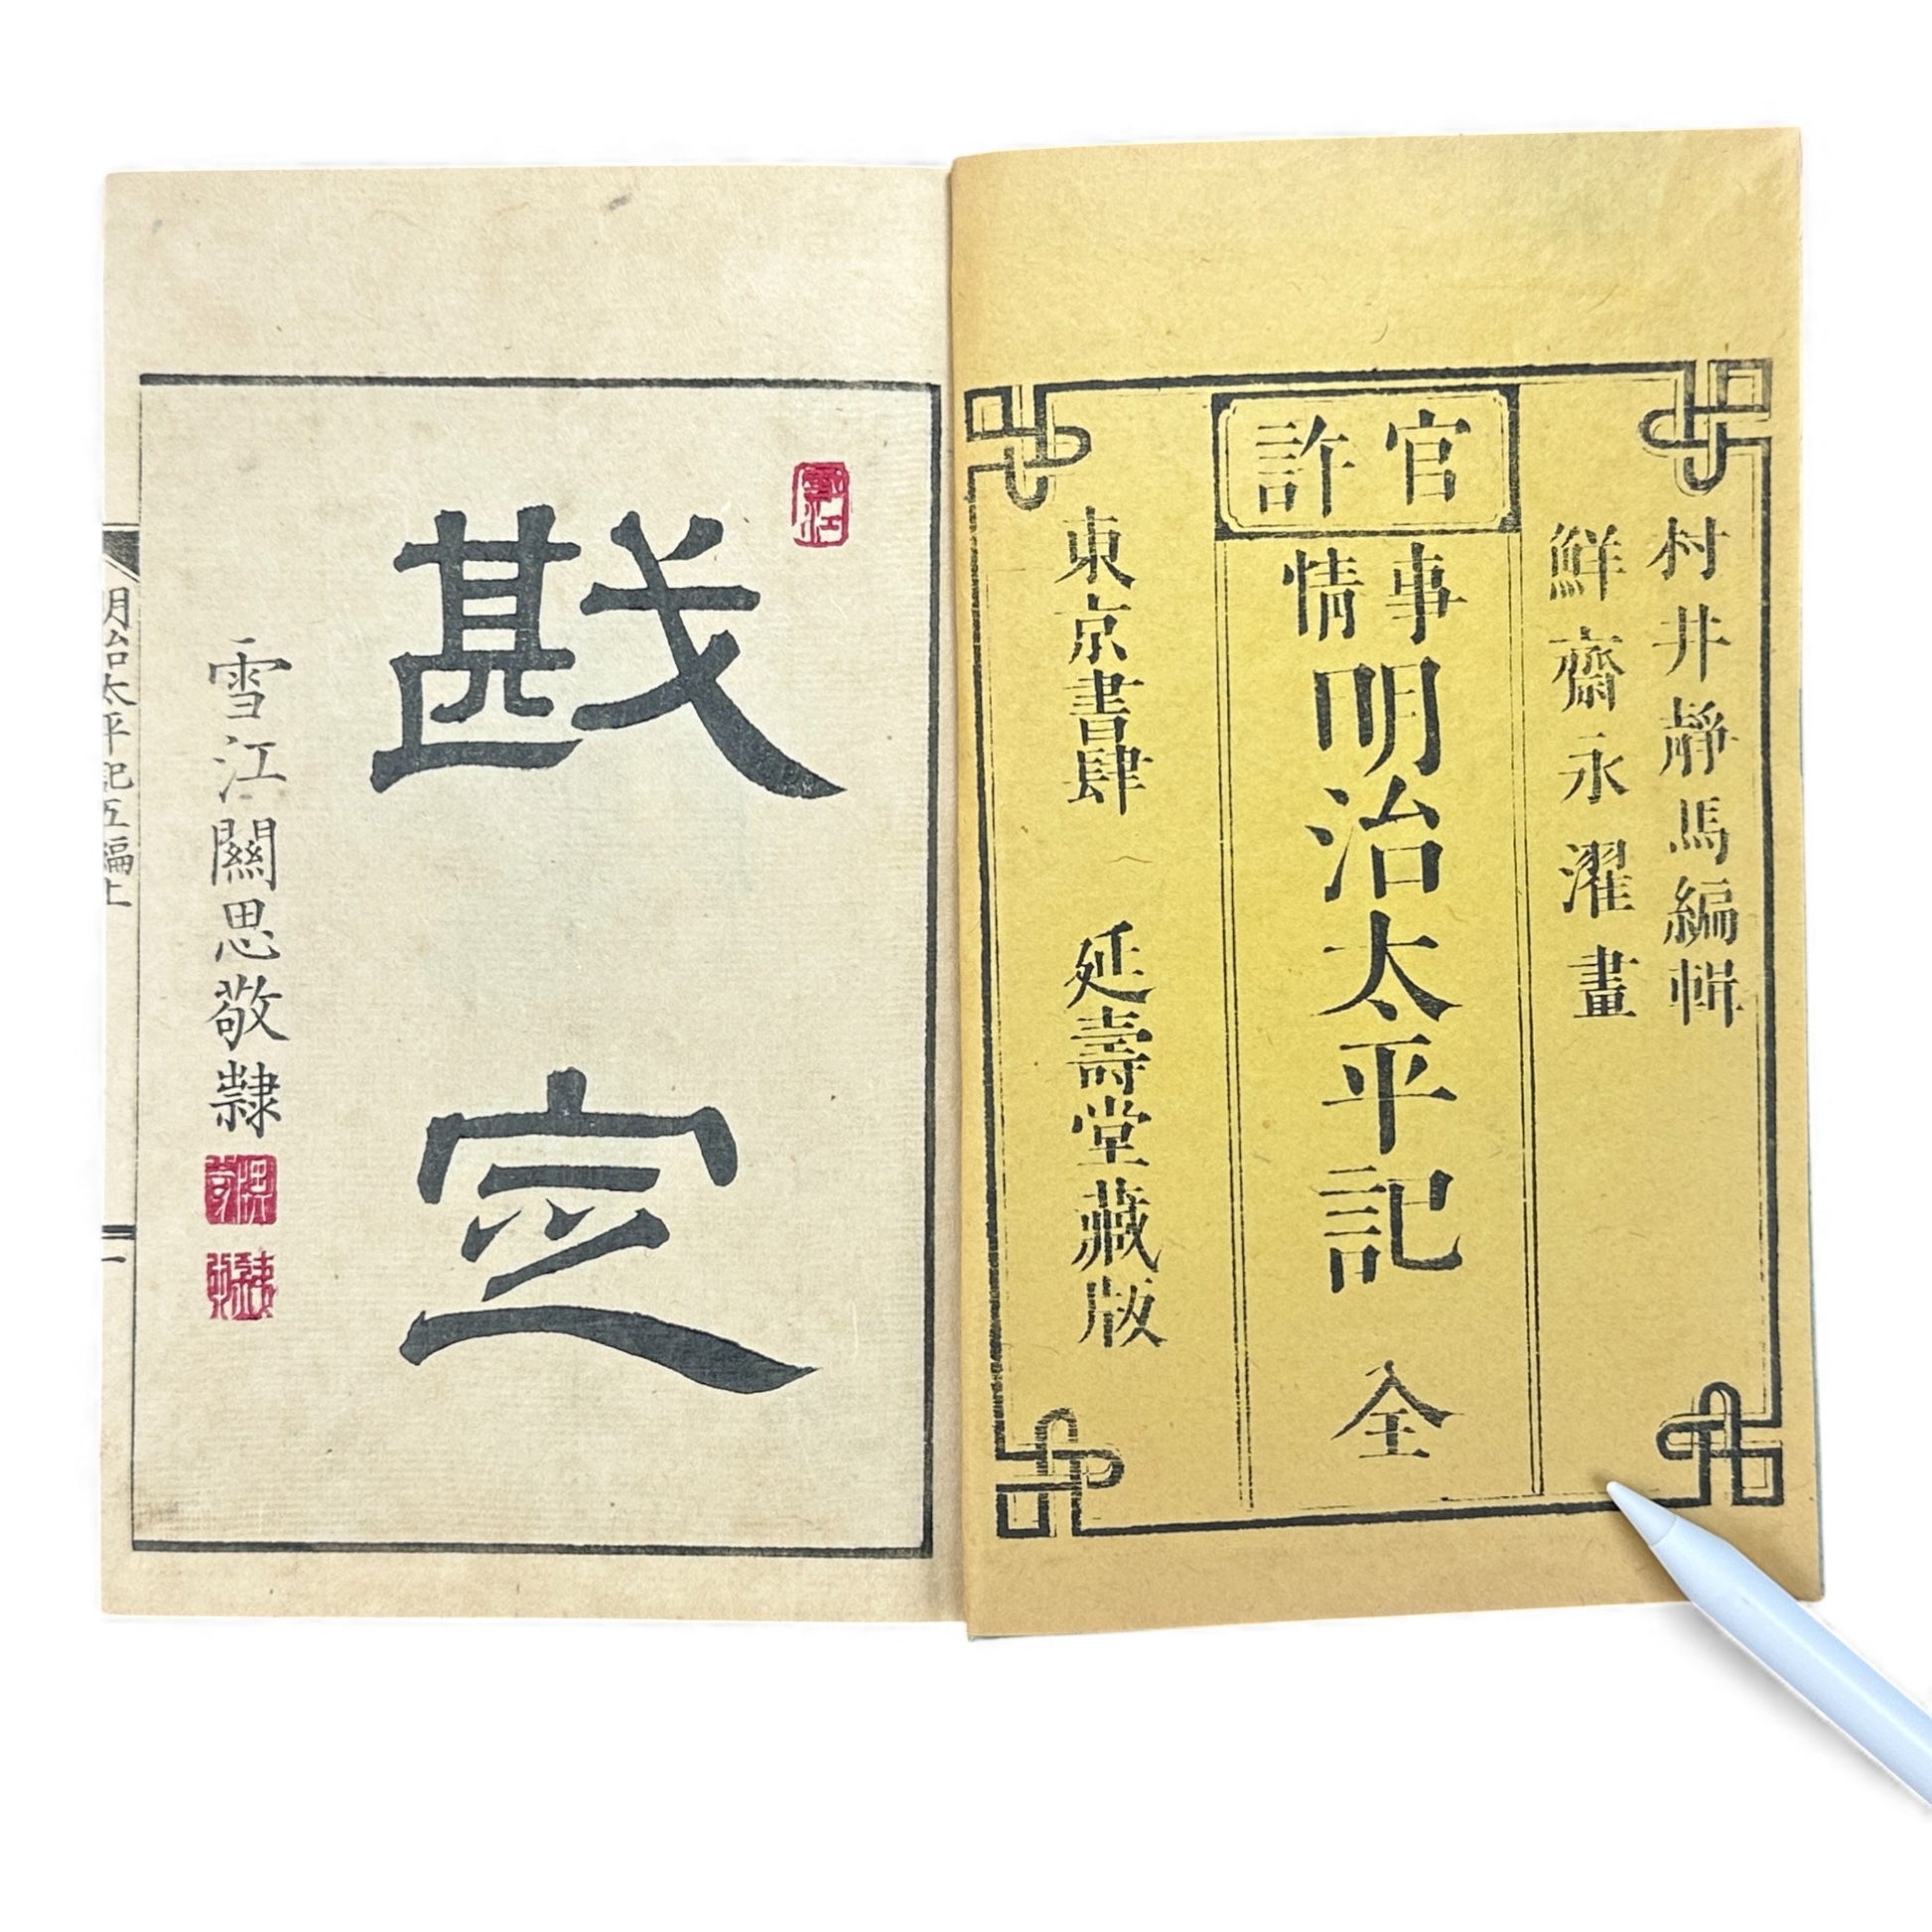 官許
村井靜馬編輯
鮮齋永濯畫
事情
明治太平記 全
東京書肆 延壽堂藏版
雪江
戡定
雪江關思敬隸
明治太平記五編上
一